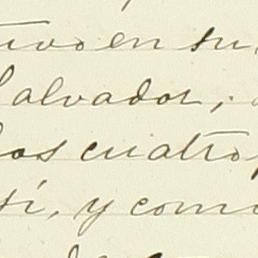 tivo en su
Salvador;
los cuatro
sí, y como